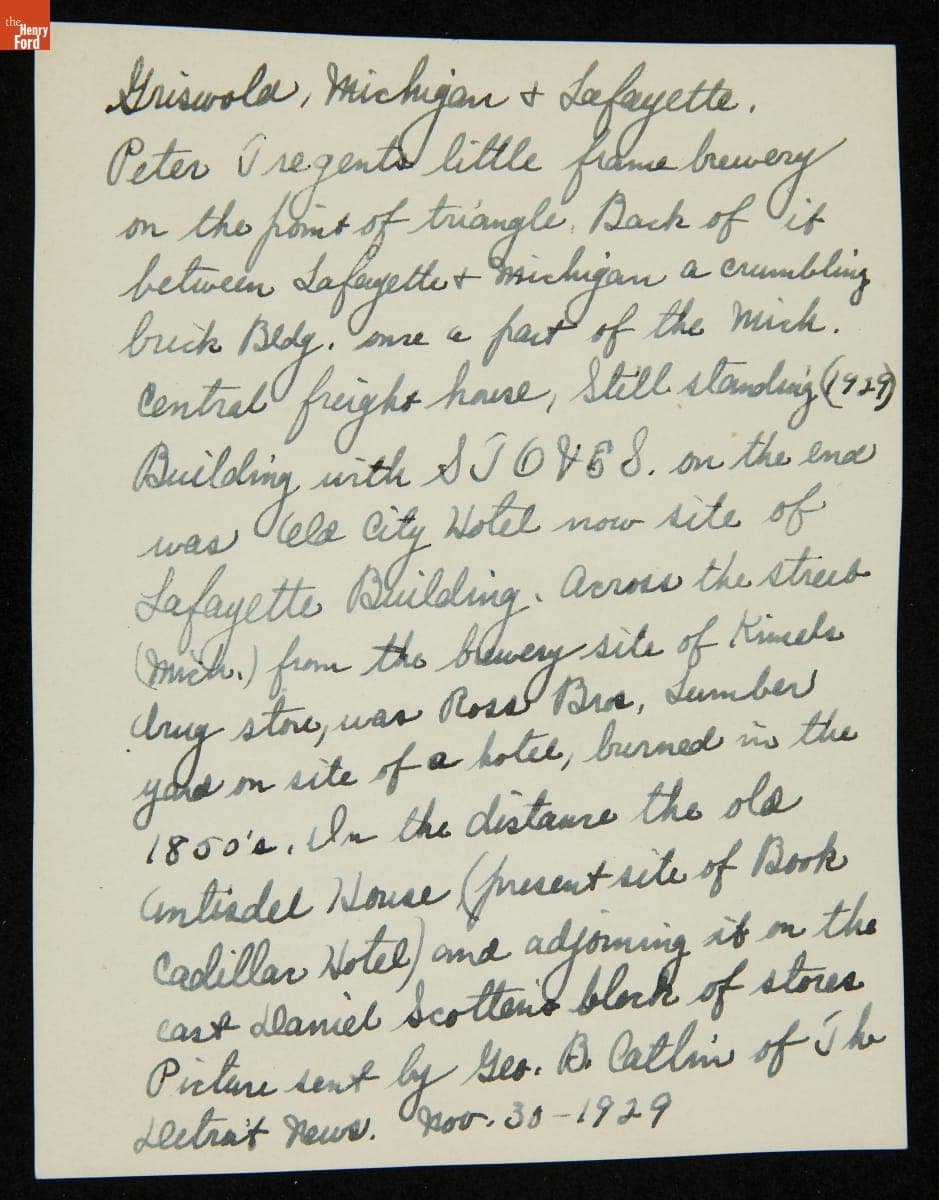 the
Henry
Ford
Griswold, Michigan & Lafayette.
Peter Tregents little frame brewery
on the point of triangle. Back of it
between Lafayette & Michigan a crumbling
brick Bldg. once a part of the Mich.
Central freight house, Still standing (1929)
Building with STOVES. on the end
was Old City Hotel now site of
Lafayette Building. Across the street
(Mich.) from the brewery site of
drug store, was Ross Bros, Lumber
yard on site of a hotel, burned in the
1850's. In the distance the old
Antisdel House (present site of Book
Cadillac Hotel) and adjoining it on the
east Daniel Scotten's block of stores
Picture sent by Geo. B. Catlin of The
Detroit News. Nov. 30-1929